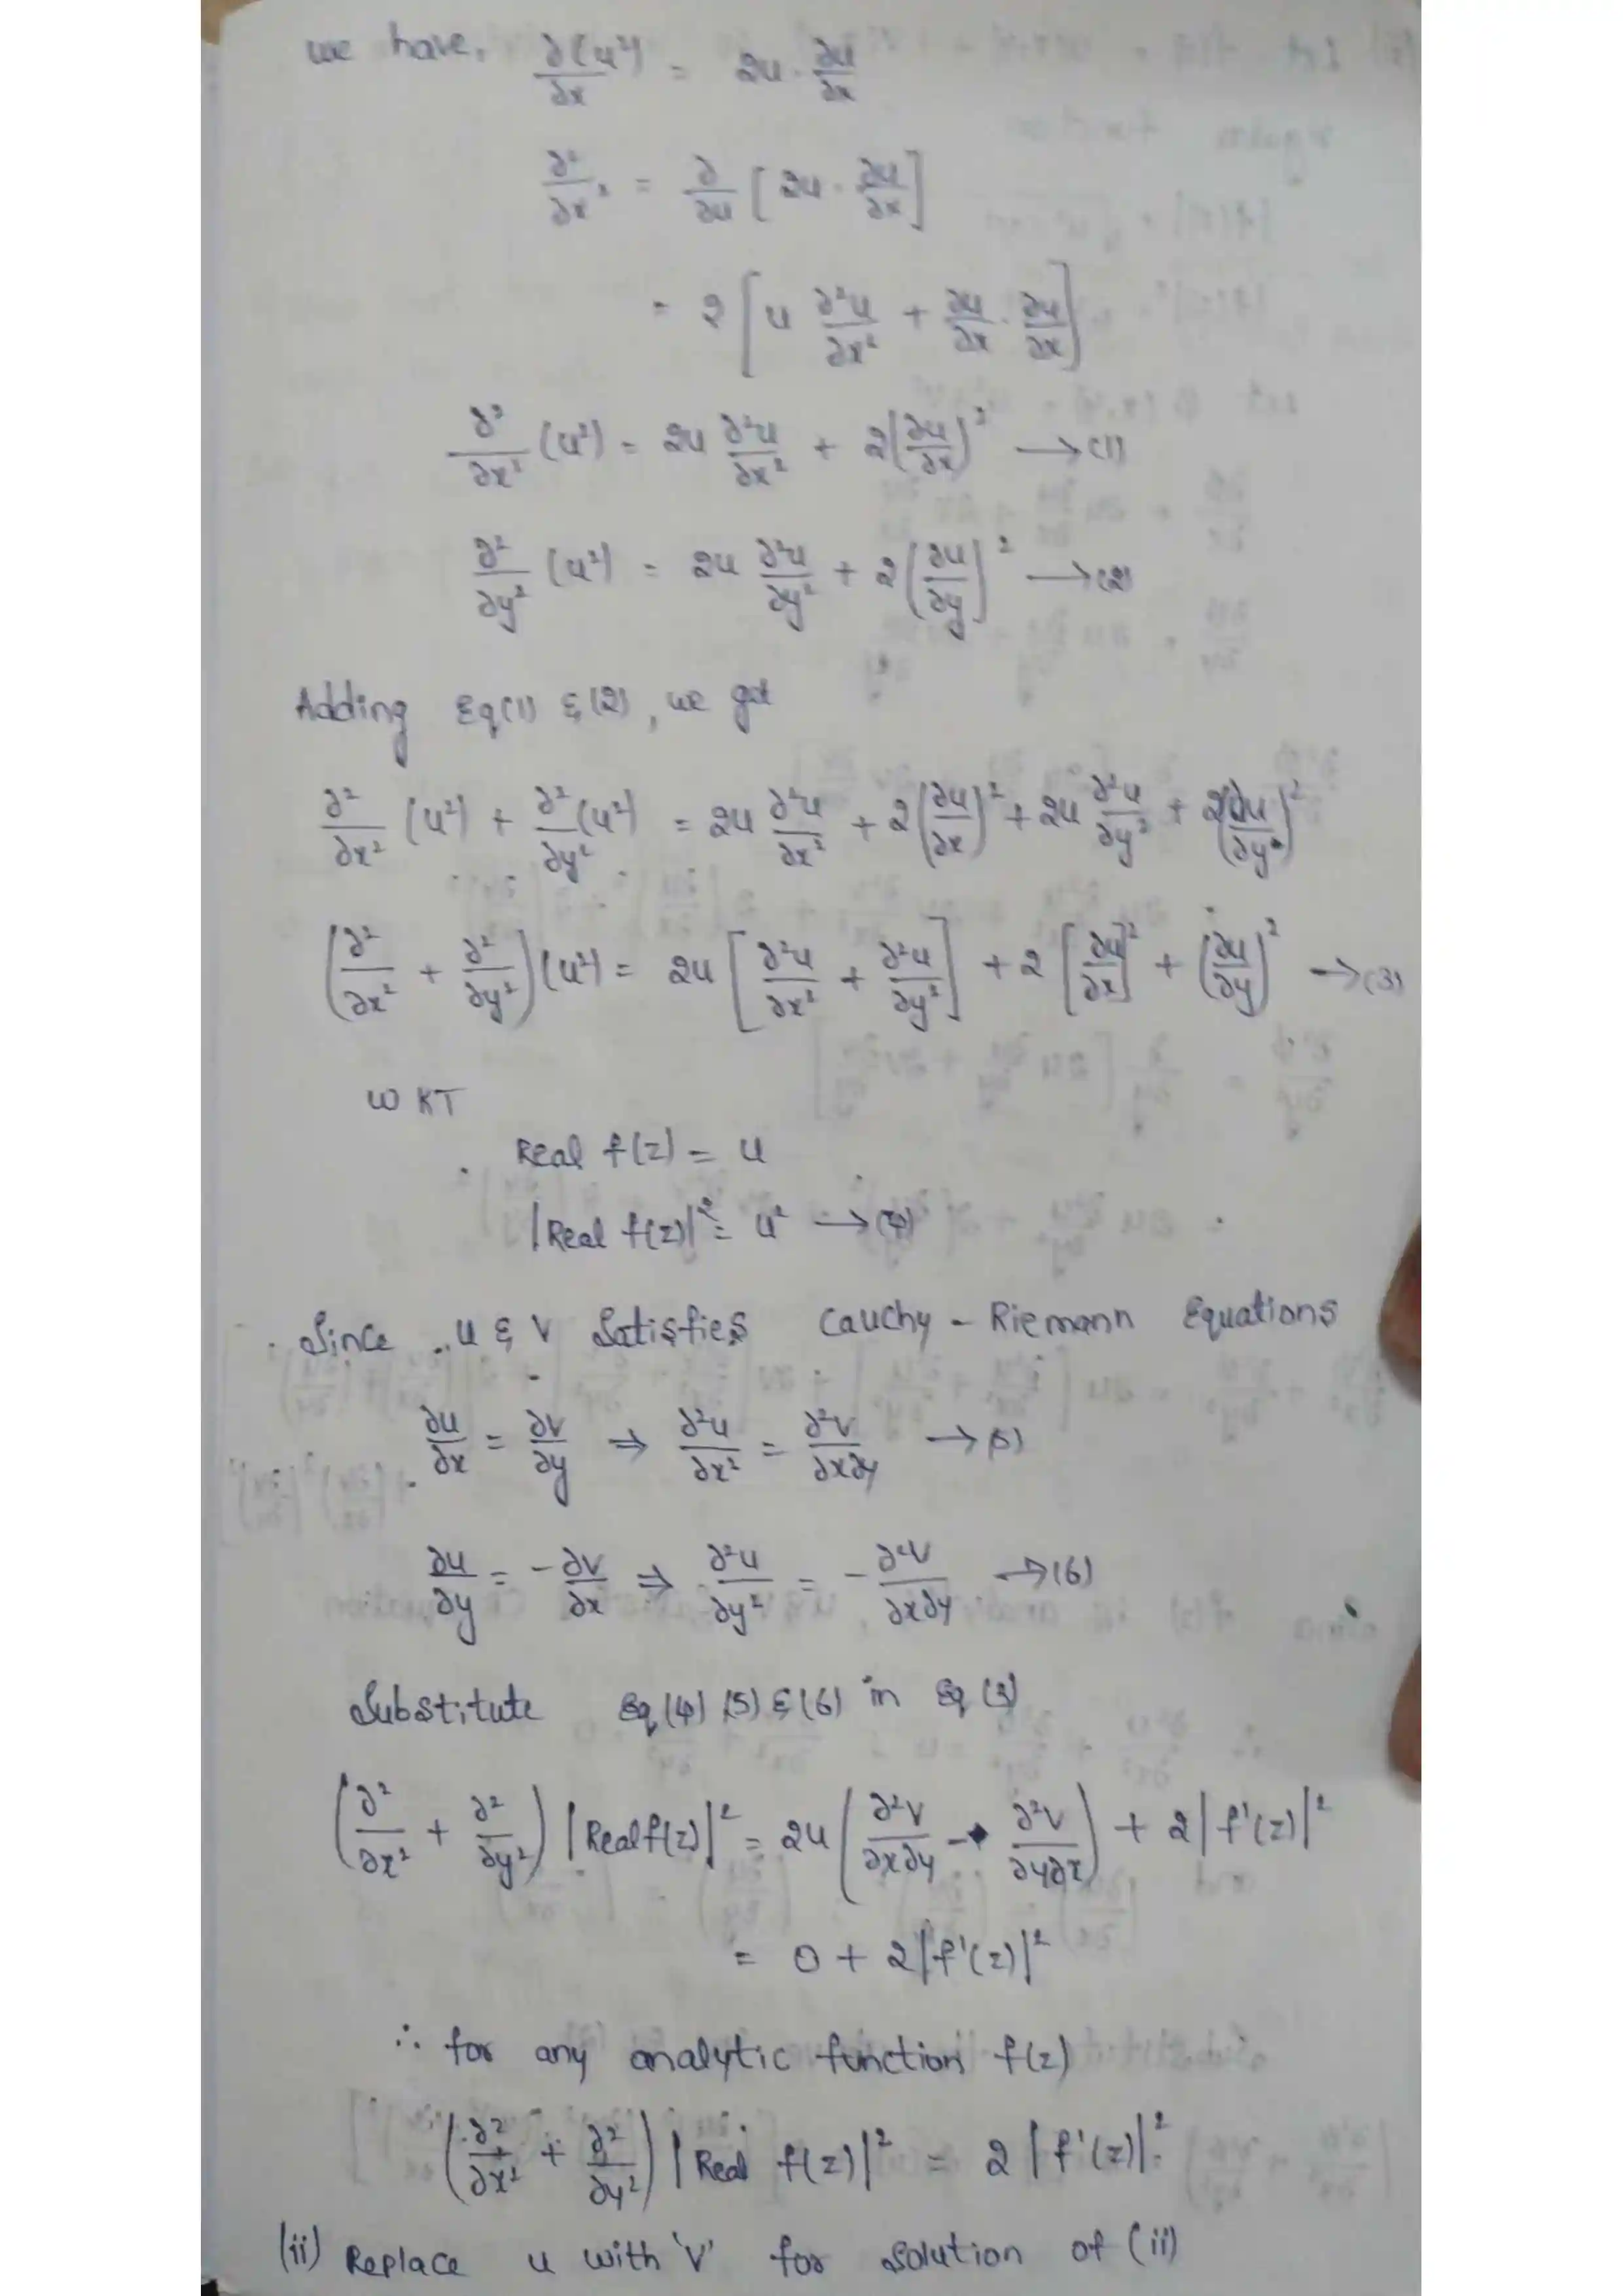 we have, ∂(u²)/∂x = 2u · ∂u/∂x
∂²/∂x² = ∂/∂u [2u · ∂u/∂x]
= 2 [u ∂²u/∂x² + ∂u/∂x · ∂u/∂x]
∂²/∂x² (u²) = 2u ∂²u/∂x² + 2(∂u/∂x)² → (1)
∂²/∂y² (u²) = 2u ∂²u/∂y² + 2(∂u/∂y)² → (2)
Adding Eq(1) & (2), we get
∂²/∂x² (u²) + ∂²/∂y² (u²) = 2u ∂²u/∂x² + 2(∂u/∂x)² + 2u ∂²u/∂y² + 2(∂u/∂y)²
(∂²/∂x² + ∂²/∂y²)(u²) = 2u [∂²u/∂x² + ∂²u/∂y²] + 2 [∂u/∂x]² + (∂u/∂y)² → (3)
WKT
Real f(z) = u
|Real f(z)|² = u² → (4)
Since u & v Satisfies Cauchy - Riemann Equations
∂u/∂x = ∂v/∂y ⇒ ∂²u/∂x² = ∂²v/∂x∂y → (5)
∂u/∂y = -∂v/∂x ⇒ ∂²u/∂y² = -∂²v/∂x∂y → (6)
Substitute Eq (4) (5) & (6) in Eq (3)
(∂²/∂x² + ∂²/∂y²) |Real f(z)|² = 2u (∂²v/∂x∂y - ∂²v/∂y∂x) + 2|f'(z)|²
= 0 + 2|f'(z)|²
∴ for any analytic function f(z)
(∂²/∂x² + ∂²/∂y²) |Real f(z)|² = 2|f'(z)|²
(ii) Replace u with 'v' for solution of (ii)